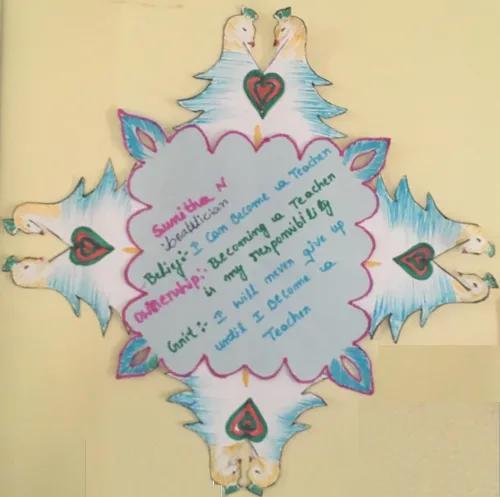 Sunitha N
beautician
Beliy:- I can Become a Teacher
Ownership:- Becoming a Teacher
is my responsibility
Grit:- I will never give up
until I Become a
Teacher